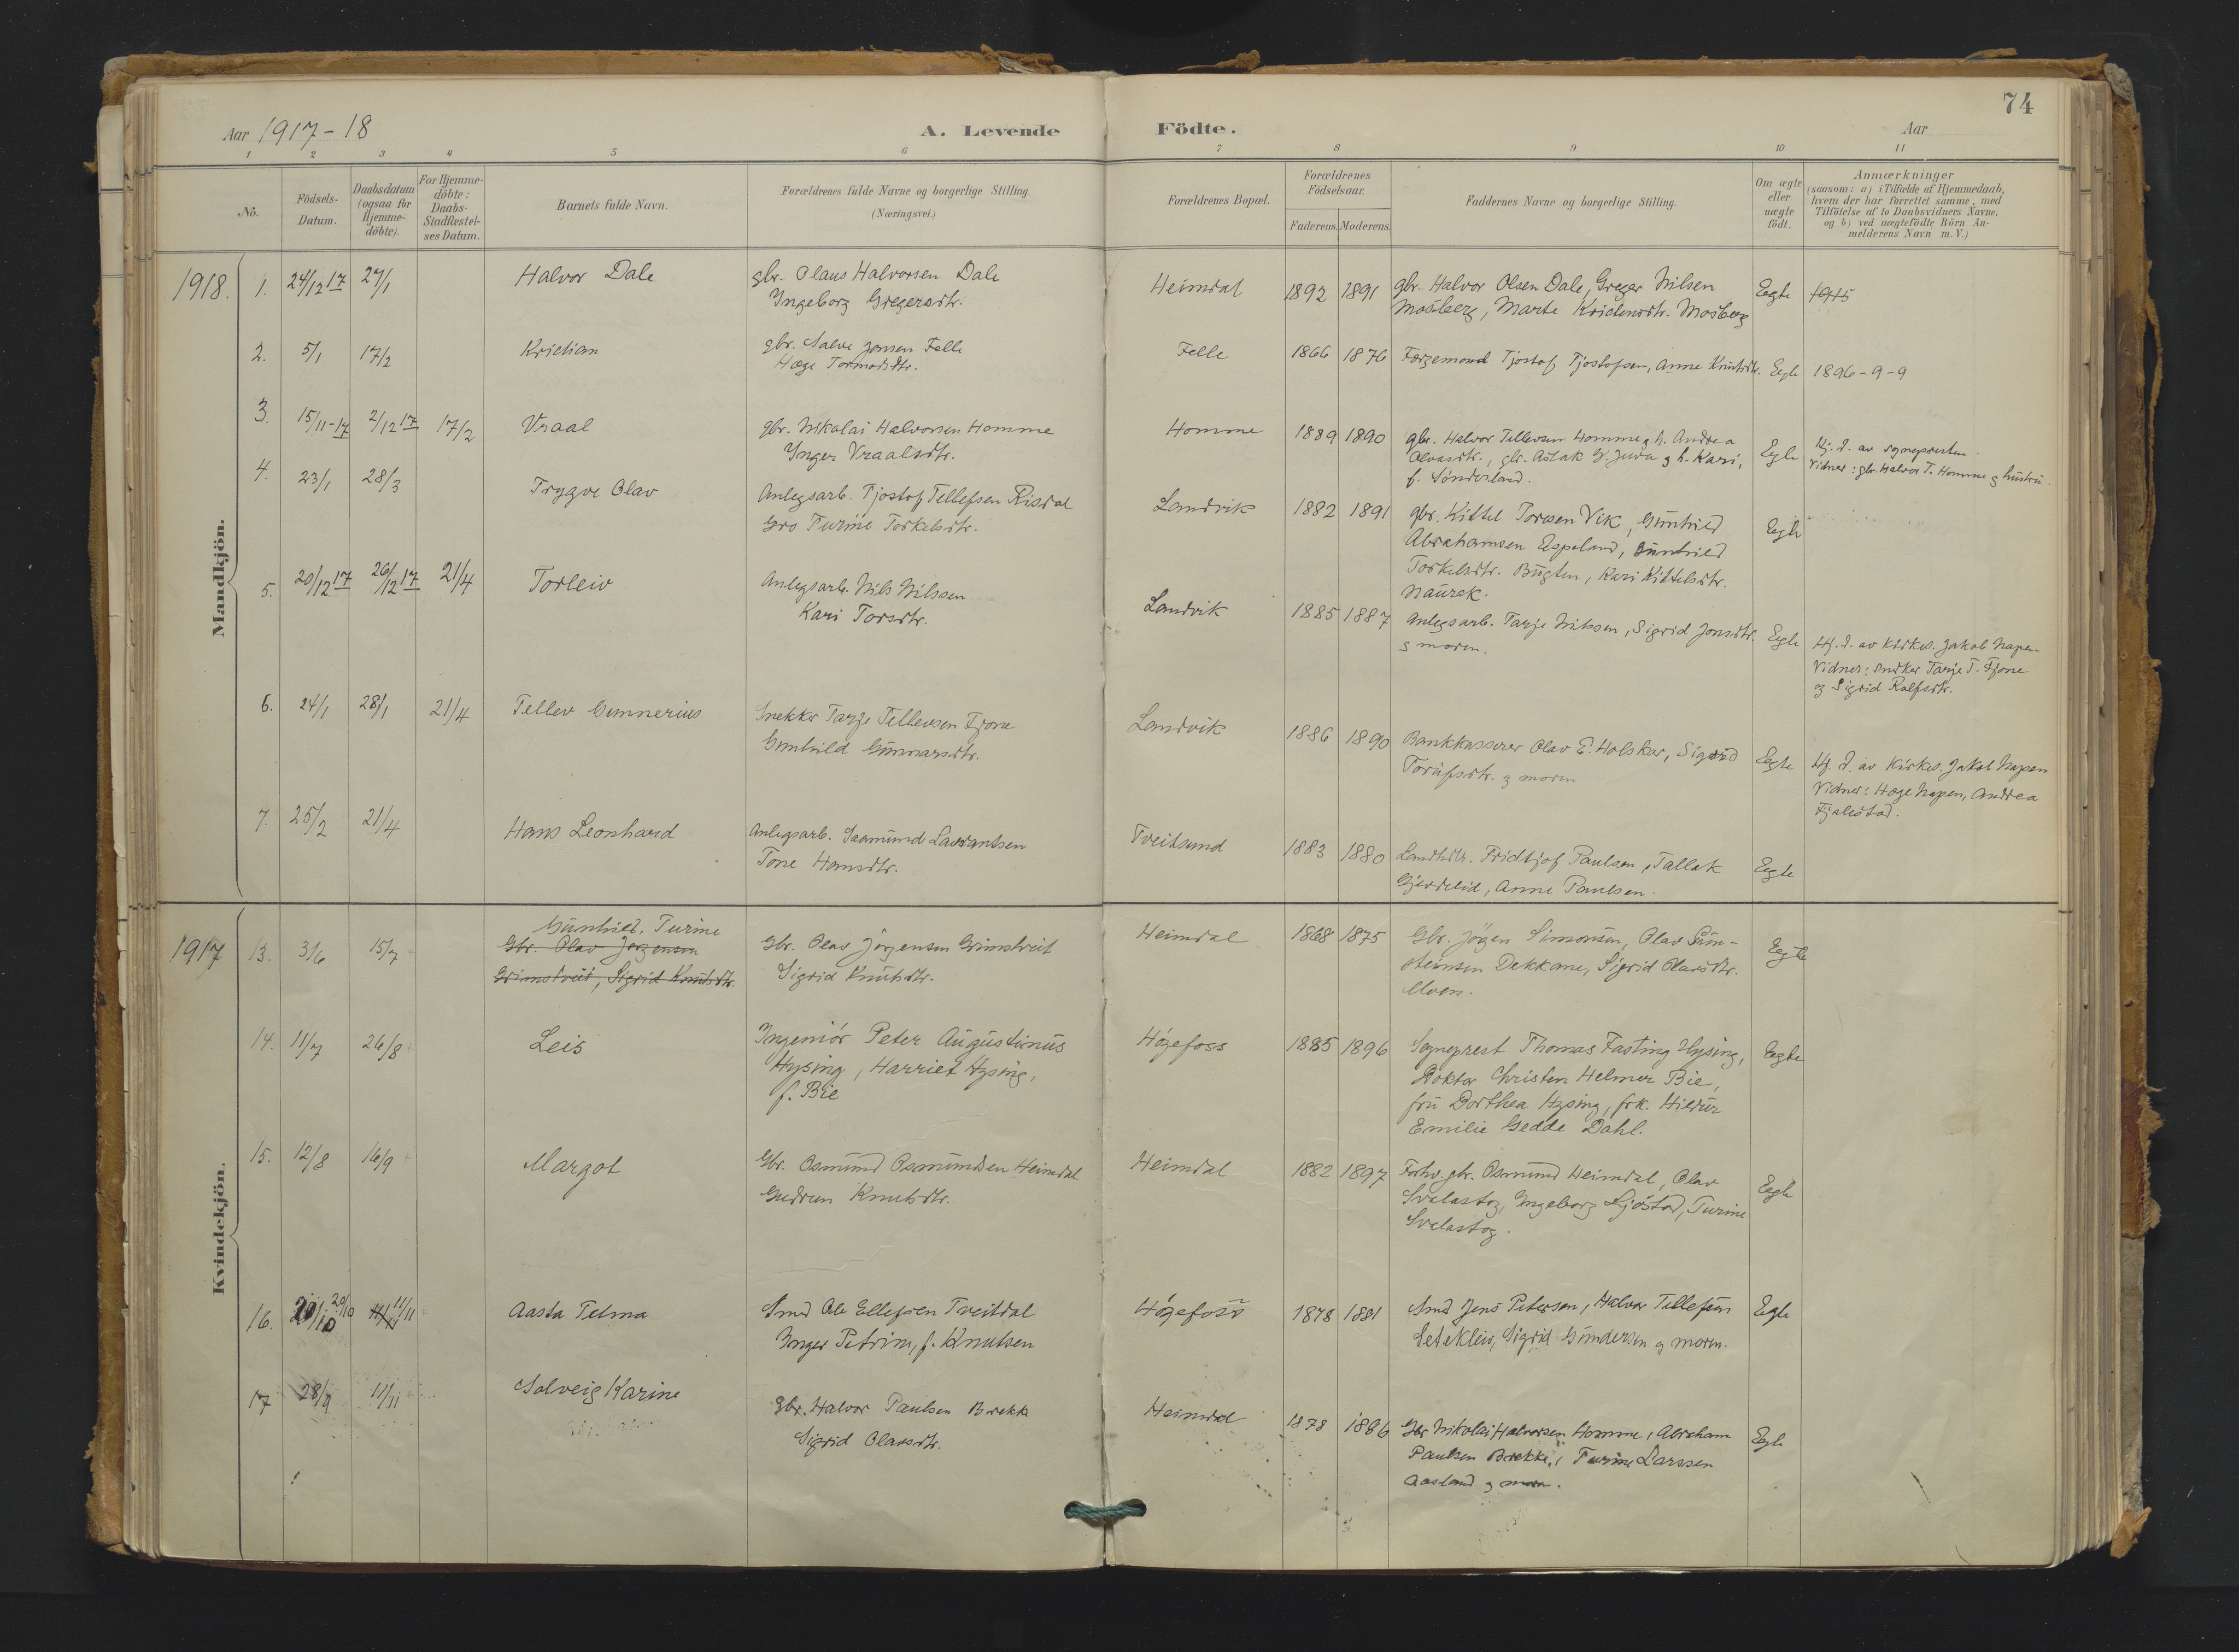 74
Aar 1917-18
A. Levende Födte.
Aar
1 2 3 4 5 6 7 8 9 10 11
No.
Födsels-
Datum.
Daabsdatum
(ogsaa for
Hjemme-
döbte).
For Hjemme-
döbte:
Daabs-
Stadfæstel-
ses Datum.
Barnets fulde Navn.
Forældrenes fulde Navne og borgerlige Stilling.
(Næringsvei.)
Forældrenes Bopæl.
Forældrenes
Födselsaar.
Faderens. Moderens.
Faddernes Navne og borgerlige Stilling.
Om ægte
eller
uægte
födt.
Anmærkninger
(saasom: a) i Tilfælde af Hjemmedaab,
hvem der har forrettet samme, med
Tilföielse af to Daabsvidners Navne,
og b) ved uægtefödte Börn An-
melderens Navn m. V.)
Mandkjön.
1918. 1. 24/12 17 27/1 Halvor Dale
gbr. Olaus Halvorsen Dale
Ingeborg Gregersdtr.
Heimdal 1892 1891
gbr. Halvor Olsen Dale, Greger Nilsen
Mosberg, Marte Kristensdtr. Mosberg
Egte 1915
2. 5/1 17/2 Kristian
gbr. Salve Jonsen Felle
Hæge Tormodsdtr.
Felle 1866 1876
Færgemand Tjostof Tjostofsen, Anne Knutsdtr.
Egte 1896-9-9
3. 15/11-17 2/12 17 17/2 Vraal
gbr. Nikolai Halvorsen Homme
Inger Vraalsdtr.
Homme 1889 1890
gbr. Halvor Tellevsen Homme g h. Andrea
Olvasdtr., gbr. Aslak G. Juva g h. Kari,
f. Sönderland.
Egte
Hj. d. av sognepresten.
Vidner: gbr. Halvor T. Homme g hustru.
4. 23/1 28/3 Trygve Olav
Anlegsarb. Tjostof Tellefsen Risdal
Gro Turine Torkelsdtr.
Landvik 1882 1891
gbr. Kittel Toresen Vik, Gunhild
Abrahamsen Espeland, Gunhild
Torkelsdtr. Bugten, Kari Kittelsdtr.
Naurak.
Egte
5. 20/12 17 26/12 17 21/4 Torleiv
Anlegsarb. Nils Nilssen
Kari Torsdtr.
Landvik 1885 1887
Anlegsarb. Tarje Nilssen, Sigrid Jonsdtr.
g moren.
Egte
Hj. d. av Kirkes. Jakob Napen
Vidner: Snekker Tarje T. Fjone
og Sigrid Rolfsdtr.
6. 24/1 28/1 21/4 Tellev Gunnerius
Snekker Tarje Tellevsen Fjone
Gunhild Gunnarsdtr.
Landvik 1886 1890
Bankkasserer Olav E. Holskar, Sigrid
Torufsdtr. g moren
Egte
Hj. d. av Kirkes. Jakob Napen
Vidner: Hæge Napen, Andrea
Fjalestad.
7. 25/2 21/4 Hans Leonhard
Anlegsarb. Saamund Lavrantsen
Tone Hansdtr.
Treitsund 1883 1880
Landhdlr. Fridtjof Paulsen, Tallak
Gjerdelid, Anne Paulsen.
Egte
Kvindekjön.
1917 13. 3/6 15/7 Gunhild Turine
Gbr. Olav Jørgensen
Grimstveit, Sigrid Knutsdtr.
Gbr. Olav Jörgensen Grimstveit
Sigrid Knutsdtr.
Heimdal 1868 1875
Gbr. Jörgen Simonsen, Olav Gun-
steinsen Dekkane, Sigrid Olavsdtr.
Moen.
Egte
14. 11/7 26/8 Leis
Ingeniör Peter Augustinus
Hysing, Harriet Hysing,
f. Bie
Högefoss 1885 1896
Sogneprest Thomas Fasting Hysing,
Doktor Christen Helmer Bie,
fru Dorthea Hysing, frk. Hildur
Emilie Gedde Dahl.
Egte
15. 12/8 16/9 Margot
Gbr. Osmund Osmundsen Heimdal
Gudrun Knutsdtr.
Heimdal 1882 1897
Forhv. gbr. Osmund Heimdal, Olav
Svalastog, Ingeborg Ljöstad, Turine
Svalastog.
Egte
16. 20/10 11/11 Aasta Telma
Smed Ole Ellefsen Treitdal
Inger Petrine, f. Knutsen
Högefoss 1878 1881
Smed Jens Petersen, Halvor Tellefsen
Seteklev, Sigrid Gundersen g moren.
Egte
17 28/9 11/11 Solveig Karine
Gbr. Halvor Paulsen Brekke
Sigrid Olavsdtr.
Heimdal 1878 1886
Gbr Nikolai Halvorsen Homme, Abraham
Paulsen Brekke, Turine Larssen
Aasland g moren.
Egte